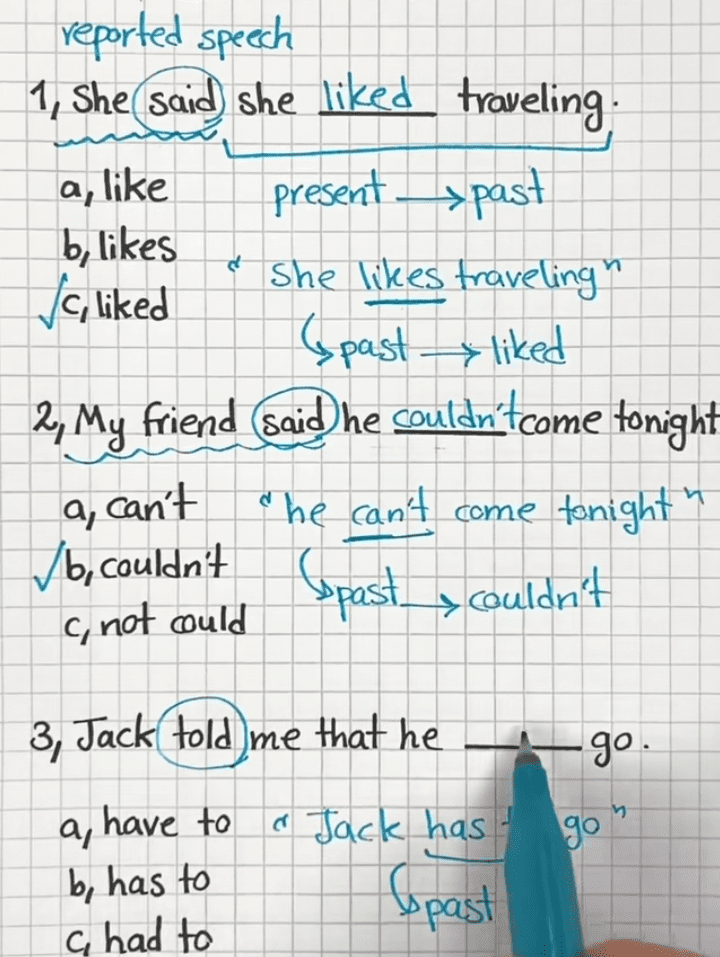 reported speech
1, She said she liked traveling.
a, like present → past
b, likes " she likes traveling"
✓c, liked past → liked
2, My friend said he couldn't come tonight
a, can't " he can't come tonight "
✓b, couldn't past → couldn't
c, not could
3, Jack told me that he ______ go.
a, have to " Jack has go "
b, has to past
c, had to